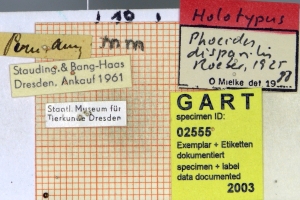 10
mm
Holotypus
Phocides
disparilis
Roeber, 1925
O Mielke det 19 98
Stauding. & Bang-Haas
Dresden, Ankauf 1961
Staatl. Museum für
Tierkunde Dresden
GART
specimen ID:
02555
Exemplar + Etiketten
dokumentiert
specimen + label
data documented
2003